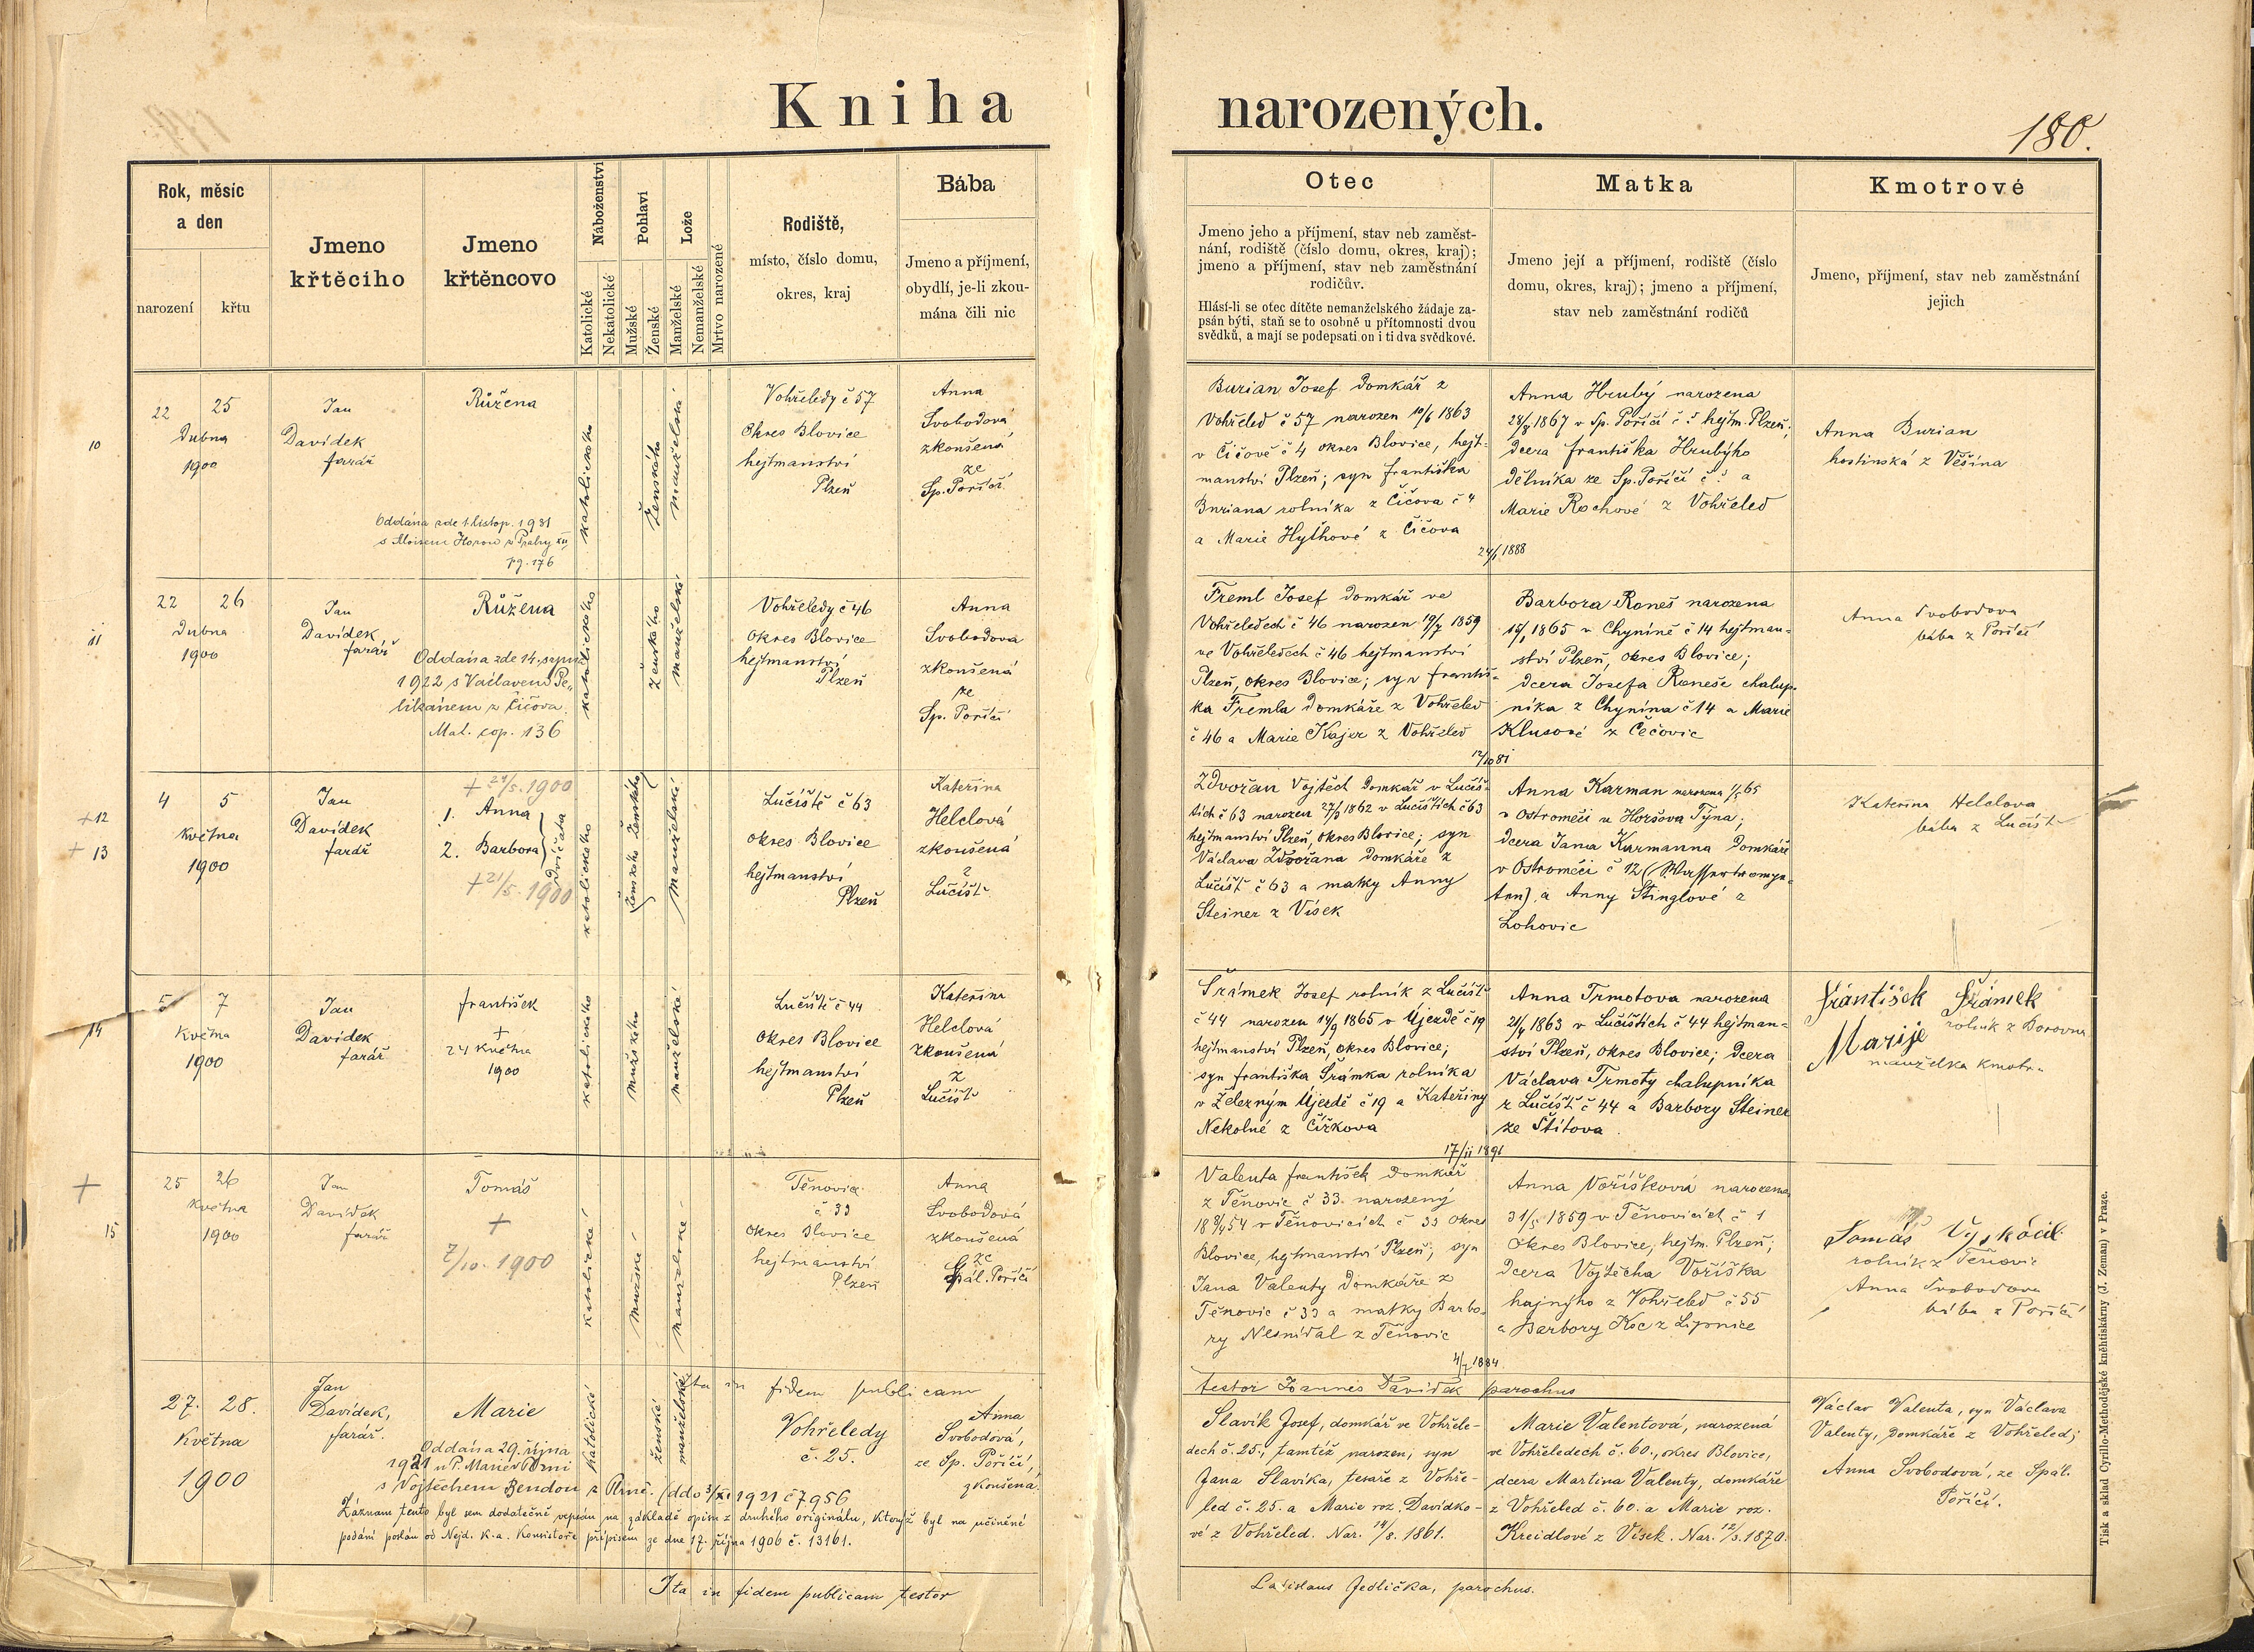 Kniha narozených.
180.
Rok, měsíc
a den
narození
křtu
Jmeno
křtěcího
Jmeno
křtěncovo
Náboženství
Katolické
Nekatolické
Pohlaví
Mužské
Ženské
Lože
Manželské
Nemanželské
Mrtvo narozené
Rodiště,
místo, číslo domu,
okres, kraj
Bába
Jmeno a příjmení,
obydlí, je-li zkou-
mána čili nic
Otec
Jmeno jeho a příjmení, stav neb zaměst-
nání, rodiště (číslo domu, okres, kraj);
jmeno a příjmení, stav neb zaměstnání
rodičův.
Hlásí-li se otec dítěte nemanželského žádaje za-
psán býti, staň se to osobně u přítomnosti dvou
svědků, a mají se podepsati on i ti dva svědkové.
Matka
Jmeno její a příjmení, rodiště (číslo
domu, okres, kraj); jmeno a příjmení,
stav neb zaměstnání rodičů
Kmotrové
Jmeno, příjmení, stav neb zaměstnání
jejich
10
22 25
Dubna
1900
Jan
Davídek
farář
Růžena
Oddána zde 1. listop. 1931
s Aloisem Horou z Prahy XII
pg. 176
katolického
ženského
manželské
Vohřeledy č 57
Okres Blovice
hejtmanství
Plzeň
Anna
Svobodová
zkoušená
ze
Sp. Poříčí
Burian Josef domkář z
Vohřeled č 57 narozen 10/6 1863
v Čičově č 4 okres Blovice, hejt-
manství Plzeň; syn františka
Buriana rolníka z Čičova č 4
a Marie Hylhové z Čičova
24/1 1888
Anna Hrubý narozena
24/8 1867 v Sp. Poříčí č ? hejtm. Plzeň;
dcera františka Hrubýho
dělníka ze Sp. Poříčí č ? a
Marie Rochové z Vohřeled
Anna Burian
hostinská z Věšína
11
22 26
Dubna
1900
Jan
Davídek,
farář
Růžena
Oddána zde 14. srpna
1922 s Václavem Pe-
likánem z Čičova.
Mat. cop. 136
katolického
ženského
manželské
Vohřeledy č 46
okres Blovice
hejtmanství
Plzeň
Anna
Svobodova
zkoušená
ze
Sp. Poříčí
Freml Josef domkář ve
Vohřeledech č 46 narozen 19/7 1859
ve Vohřeledech č 46 hejtmanství
Plzeň, okres Blovice; syn františ-
ka Fremla domkáře z Vohřeled
č 46 a Marie Kajer z Vohřeled
Barbora Roneš narozena
15/1 1865 v Chyníně č 14 hejtman-
ství Plzeň, okres Blovice;
dcera Josefa Roneše chalup-
níka z Chynína č 14 a Marie
Klusové z Čečovic
12/10 81
Anna Svobodova
bába z Poříčí
+ 12
+ 13
4 5
května
1900
Jan
Davídek
farář
+ 24/5. 1900
1. Anna
2. Barbora
Dvojčata
+ 21/5. 1900
katolického
ženského ženského
manželské
Lučiště č 63
okres Blovice
hejtmanství
Plzeň
Kateřina
Helclová
zkoušená
z
Lučišť
Zdvořan Vojtěch domkář v Lučiš-
tích č 63 narozen 27/3 1862 v Lučištích č 63
hejtmanství Plzeň, okres Blovice; syn
Václava Zdvořana domkáře z
Lučišť č 63 a matky Anny
Steiner z Vísek
Anna Karman narozena 1/5 65
v Ostroměči u Horšova Týna;
dcera Jana Karmanna domkáře
v Ostroměči č 12
a Anny Stinglové z
Lohovic
Kateřina Helclova
bába z Lučišť
14
5 7
Května
1900
Jan
Davídek
farář
františek
+
24 Května
1900
katolického
mužského
manželské
Lučiště č 44
okres Blovice
hejtmanství
Plzeň
Kateřina
Helclová
zkoušená
z
Lučišť
Šrámek Josef rolník z Lučišť
č 44 narozen 14/9 1865 v Újezdě č 19
hejtmanství Plzeň, okres Blovice;
syn františka Šrámka rolníka
v Železným Újezdě č 19 a Kateřiny
Nekolné z Čížkova
17/11 1891
Anna Trmotova narozena
21/4 1863 v Lučištích č 44 hejtman-
ství Plzeň, okres Blovice; dcera
Václava Trmoty chalupníka
z Lučišť č 44 a Barbory Steiner
ze Štítova
František Šrámek
rolník z Borovna
Marije
manželka kmotra
+
15
25 26
Května
1900
Jan
Davídek
farář
Tomáš
+
7/10. 1900
katolické
mužské
manželské
Těnovice
č 33
okres Blovice
hejtmanství
Plzeň
Anna
Svobodová
zkoušená
ze
Spál. Poříčí
Valenta františek domkář
z Těnovic č 33. narozený
v Těnovicích č 33 okres
Blovice, hejtmanství Plzeň; syn
Jana Valenty domkáře z
Těnovic č 33 a matky Barbo-
ry Nesnídal z Těnovic
4/7 1884
Anna Voříšková narozena
31/5 1859 v Těnovicích č 1
okres Blovice, hejtm. Plzeň;
dcera Vojtěcha Voříška
hajnýho z Vohřeled č 55
a Barbory Koc z Lipnice
Tomáš Vyskočil
rolník z Těnovic
Anna Svobodova
bába z Poříčí
Ita in fidem publicam
testor Joannes Davídek parochus
27. 28.
Května
1900
Jan
Davídek,
farář.
Marie
Oddána 29. října
1921 u P. Marie v Plzni
s Vojtěchem Bendou z Plzně. (ddo 3/XI 1921 č 7956
katolické
ženské
manželské
Vohřeledy
č. 25.
Anna
Svobodová,
ze Sp. Poříčí,
zkoušená.
Záznam tento byl sem dodatečně vepsán na základě opisu z druhého originálu, kterýž byl na učiněné
podání poslán od Nejd. k. a. Konsistoře přípisem ze dne 17. října 1906 č. 13161.
Slavík Josef, domkář ve Vohřele-
dech č. 25., tamtéž narozen, syn
Jana Slavíka, tesaře z Vohře-
led č. 25. a Marie roz. Davídko-
vé z Vohřeled. Nar. 14/8. 1861.
Marie Valentová, narozená
ve Vohřeledech č. 60., okres Blovice,
dcera Martina Valenty, domkáře
z Vohřeled č. 60. a Marie roz.
Kreidlové z Vísek. Nar. 12/3. 1870.
Václav Valenta, syn Václava
Valenty, domkáře z Vohřeled;
Anna Svobodová, ze Spál.
Poříčí.
Ita in fidem publicam testor
Ladislaus Jedlička, parochus.
Tisk a sklad Cyrillo-Methodějské knihtiskárny (J. Zeman) v Praze.